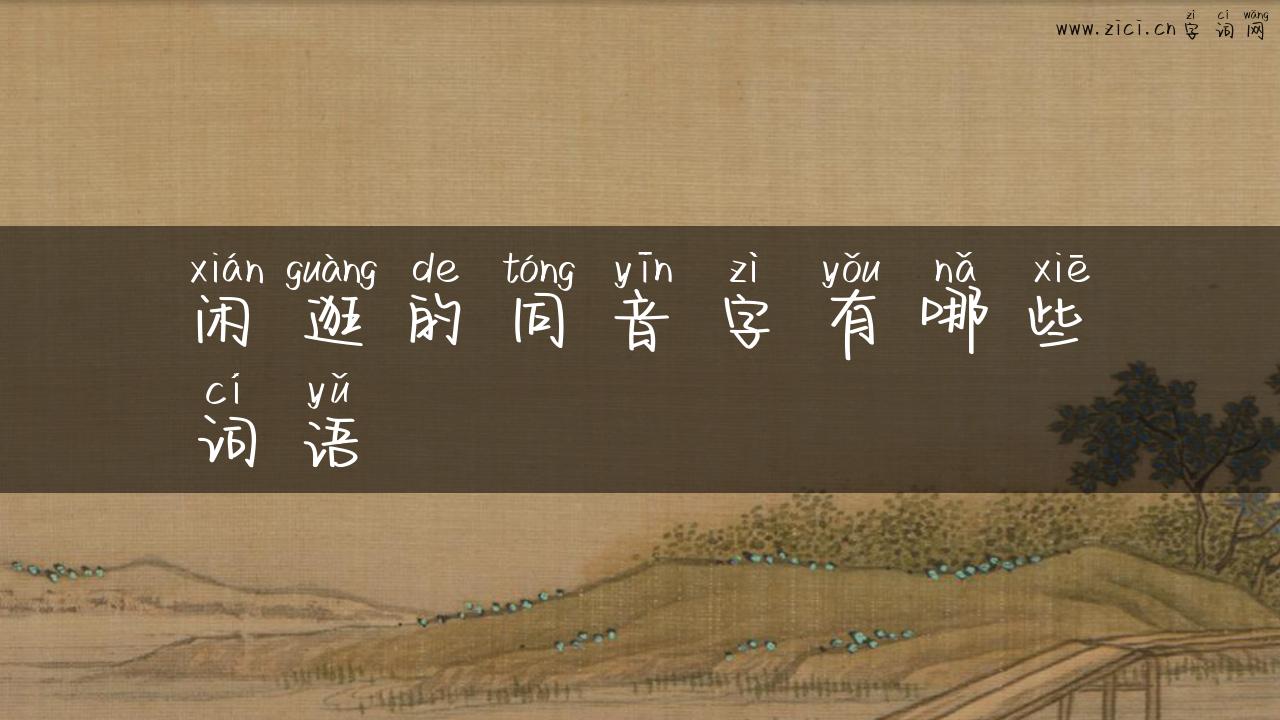 zì cí wǎng
www.zici.cn字词网
xián guàng de tóng yīn zì yǒu nǎ xiē
闲逛的同音字有哪些
cí yǔ
词语